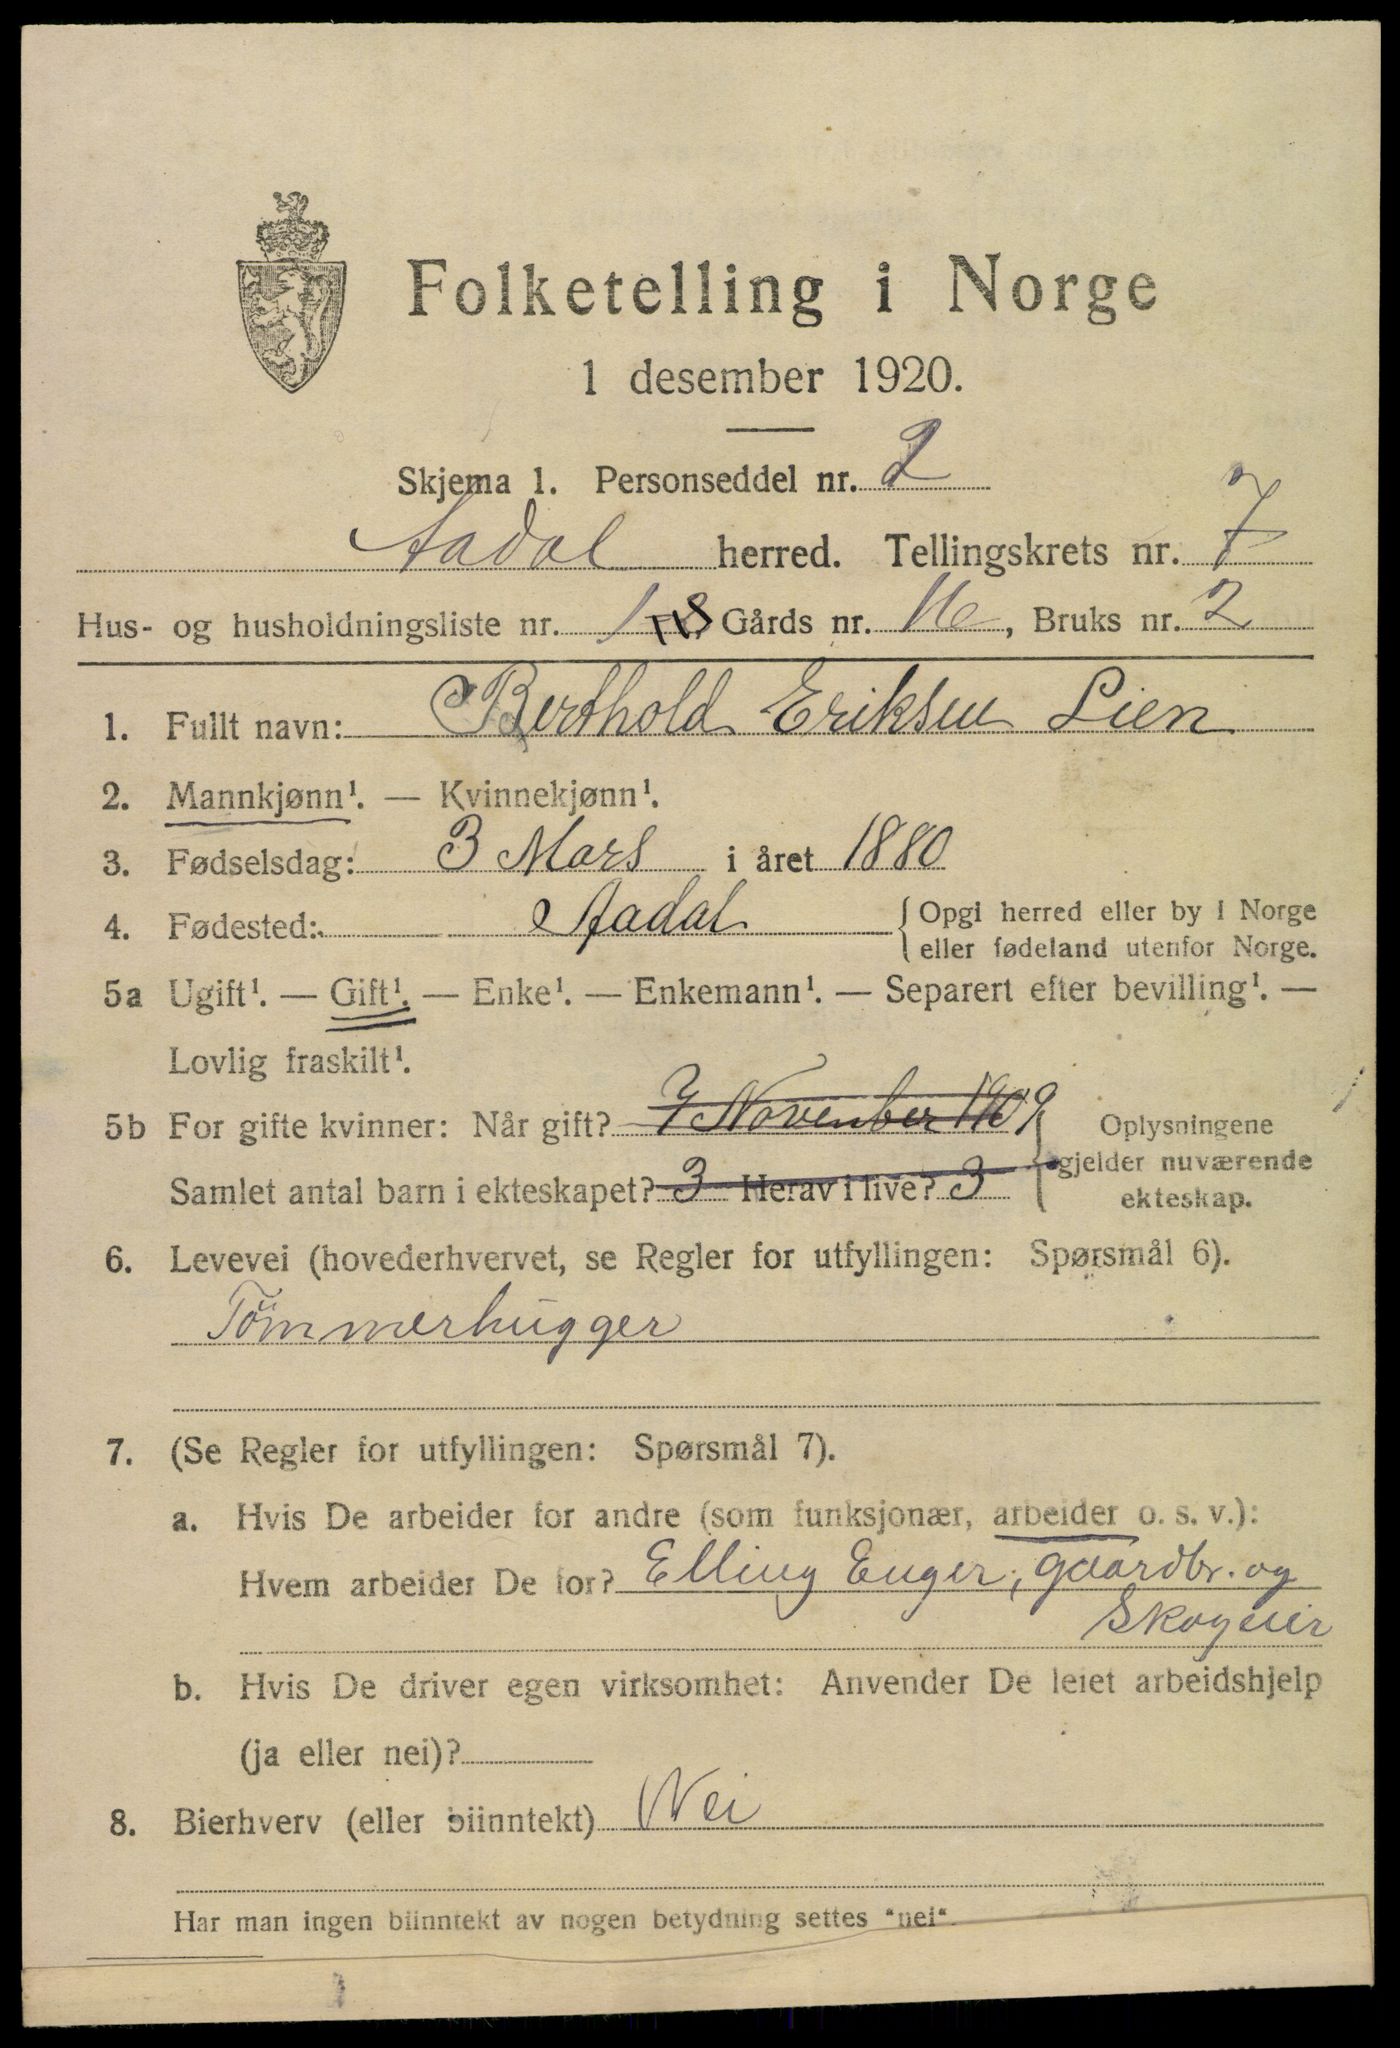 Folketelling i Norge
1 desember 1920.
Skjema 1. Personseddel nr. 2
Aadal herred. Tellingskrets nr. 7
Hus- og husholdningsliste nr. 18 Gårds nr. , Bruks nr. 2
1. Fullt navn: Berthold Eriksen Lien
2. Mannkjønn¹. — Kvinnekjønn¹.
3. Fødselsdag: 3 Mars i året 1880
4. Fødested: Aadal { Opgi herred eller by i Norge
eller fødeland utenfor Norge.
5a Ugift¹. — Gift¹. — Enke¹. — Enkemann¹. — Separert efter bevilling¹. —
Lovlig fraskilt¹.
5b For gifte kvinner: Når gift? 7 November 1909 Oplysningene
gjelder nuværende
Samlet antal barn i ekteskapet? 3 Herav i live? 3 ekteskap.
6. Levevei (hovederhvervet, se Regler for utfyllingen: Spørsmål 6).
Tömmerhugger
7. (Se Regler for utfyllingen: Spørsmål 7).
a. Hvis De arbeider for andre (som funksjonær, arbeider o. s. v.):
Hvem arbeider De for? Elling Enger, gaardbr. og
Skogeier
b. Hvis De driver egen virksomhet: Anvender De leiet arbeidshjelp
(ja eller nei)?
8. Bierhverv (eller biinntekt) Nei
Har man ingen biinntekt av nogen betydning settes "nei".